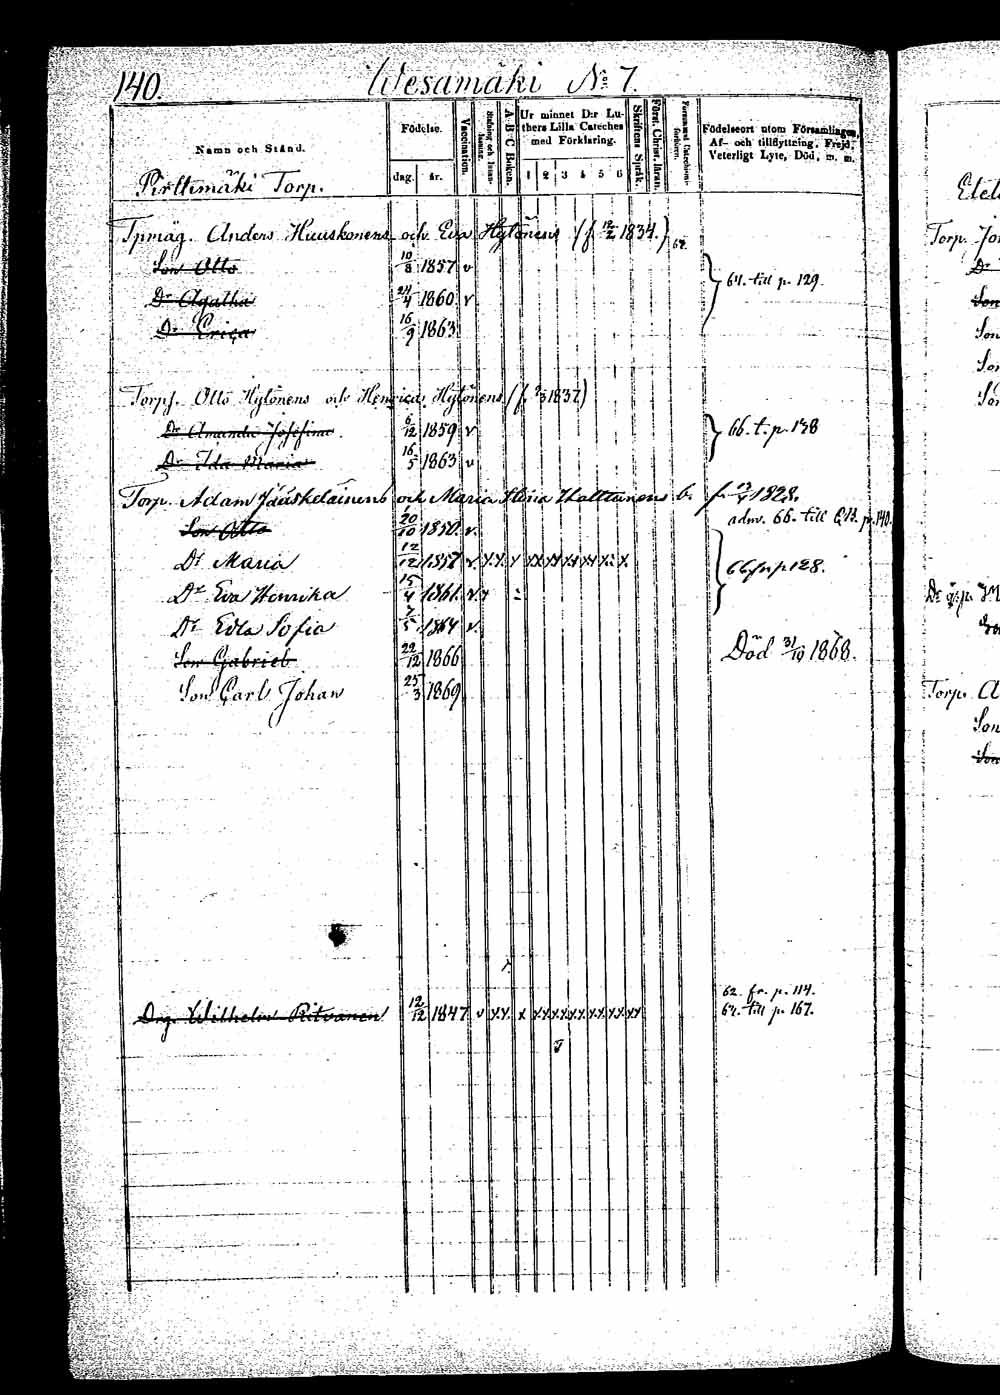 140. Wesamäki No 7.
Namn och Stånd.
Födelse.
dag. år.
Vaccination.
A-B-C Boken.
Ur minnet D:r Lu-
thers Lilla Cateches
med Förklaring.
1 2 3 4 5 6
Skriftens Språk.
Födelseort utom Församlingen,
Af- och tillflyttning, Frejd,
Veterligt Lyte, Död, m. m.
Pirttimäki Torp.
Tpmåg. Anders Huuskonens och Eva Hytönens (f. 12/2 1834.)
Son Otto 10/8 1857 v
Dr Agatha 24/4 1860 v 64. till p. 129.
Dr Erica 16/9 1863
Torp. Otto Hytönens och Henrica Hytönens (f. 2/3 1837)
Dr Amanda Josefina 6/12 1859 v 66. t. p. 128
Dr Ida Maria 16/5 1863 v
Torp. Adam Jääskeläinens och Maria Halttunens b. f. 1828.
adm. 66. till p. 140.
Son Otto 20/10 1850. v.
Dr Maria 12/12 1857 v. x.x. x xx xx xx x.x x 66 fr. p 128.
Dr Eva Henrika 15/4 1861. v
Dr Edla Sofia 7/5 1864 v.
Son Gabriel 22/12 1866 Död 31/10 1868.
Son Carl Johan 25/3 1869
62. fr. p. 114.
Drg. Wilhelm Ritvanen 12/12 1847 v xx x xx xx xx xx xx xx 64. till p. 167.
Etel
Torp. Jo
Dr
Son
Son
Son
Son
Torp. A
Son
Son